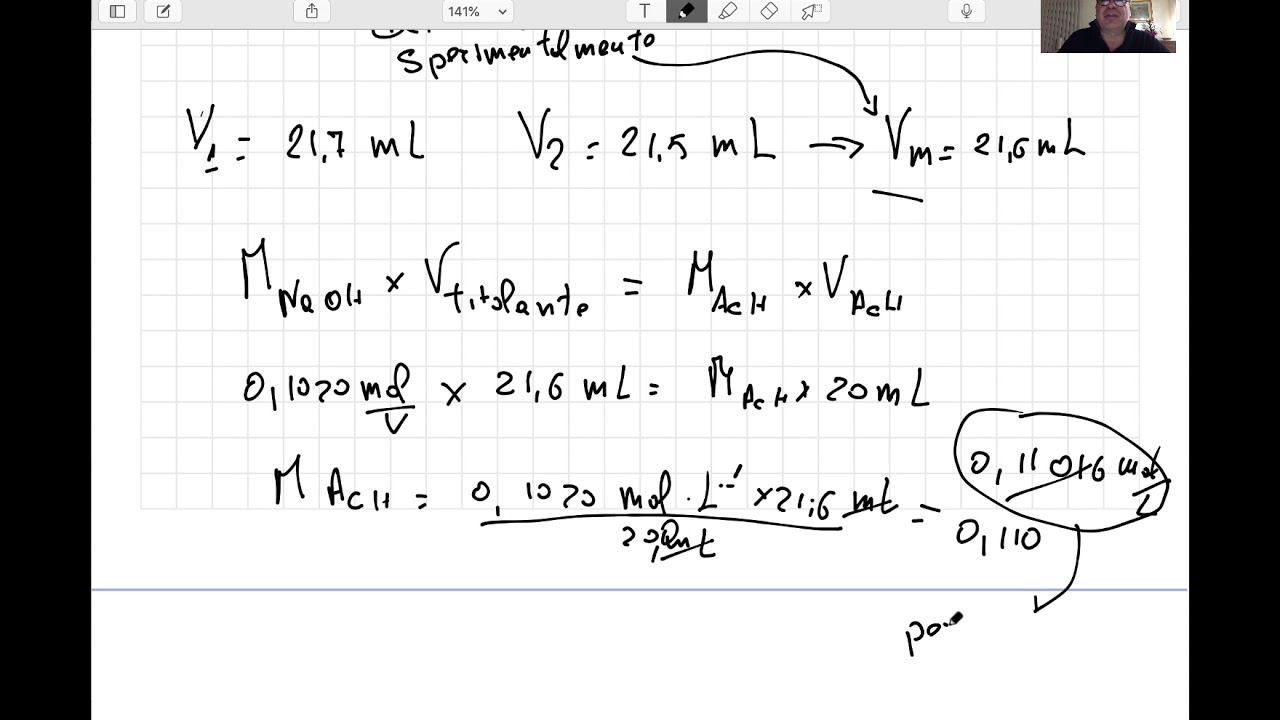 141%
T
Sperimentalmente
V1 = 21,7 mL V2 = 21,5 mL => Vm = 21,6 mL
M NaOH × V titolante = M AcH × V AcH
0,1020 mol/V × 21,6 mL = M AcH × 20 mL
M AcH = 0,1020 mol · L⁻¹ × 21,6 mL / 20,0 mL = 0,11016 mol/L
0,110